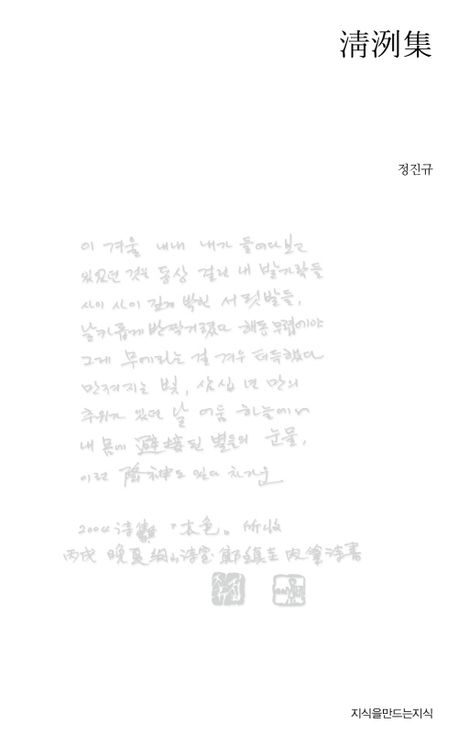 淸洌集
정진규
이 겨울 내내 내가 들여다보고
있었던 것은 동상 걸린 내 발가락들
사이 사이 깊게 박힌 서릿발들,
날카롭게 반짝거렸다 해동 무렵에야
그게 무에라는 걸 겨우 터득했다
만져지는 빛, 삼십 년 만의
추위가 있던 날 어둠 하늘에서
내 몸에 避接된 별들의 눈물,
이런 陰神도 있다 차가운
2004 詩集 『本色』 所收
丙戌 晩夏
지식을만드는지식